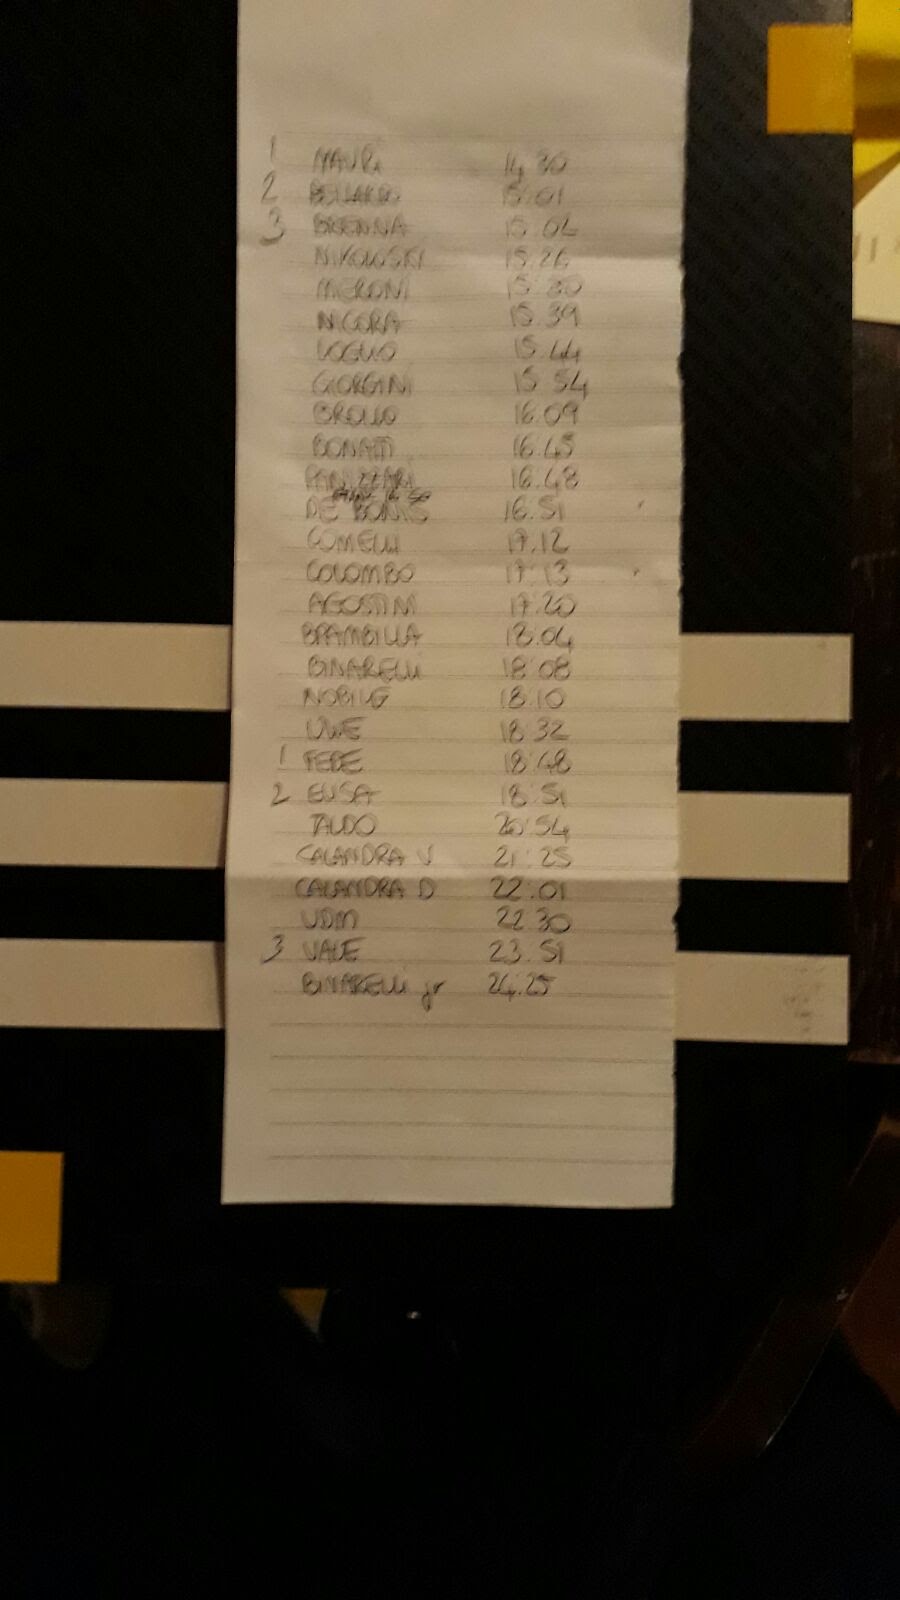 1 MAURI 14 30
2 BELLARDO 15:01
3 BRENNA 15 04
NIKOWSKI 15.26
MERONI 15:30
NICORA 15.39
VOGLIO 15.44
GIORGINI 15 54
BROLLO 16.09
BONATTI 16.45
PANIZZARI 16:48
DE BONIS 16:51
COMELLI 17.12
COLOMBO 17:13
AGOSTINI 17:20
BRAMBILLA 18:04
BINARELLI 18 08
NOBILE 18:10
UWE 18:32
1 FEDE 18:48
2 ELISA 18:51
TALDO 20:54
CALANDRA V 21:25
CALANDRA D 22:01
UDM 22 30
3 VALE 23.51
BINARELLI jr 24:25